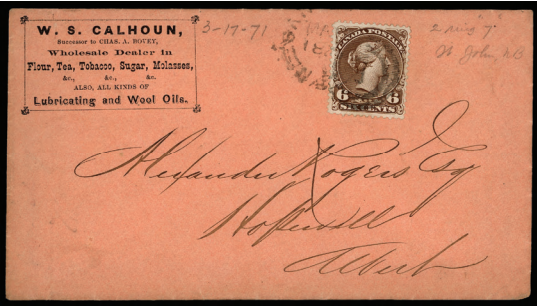 W. S. CALHOUN,
Successor to CHAS. A. BOVEY,
Wholesale Dealer in
Flour, Tea, Tobacco, Sugar, Molasses,
&c., &c., &c.
ALSO, ALL KINDS OF
Lubricating and Wool Oils.
3-17-71
CANADA POSTAGE
6 6
SIX CENTS
St John, NB
Alexander Rogers Esq
Hopewell
Albert